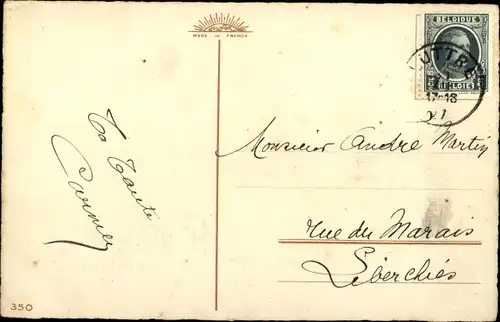 MADE IN FRANCE
BELGIQUE
BELGIË
LUTTRE
17-18
Ta Tante
Carmen
Monsieur André Martin
Rue du Marais
Liberchies
350